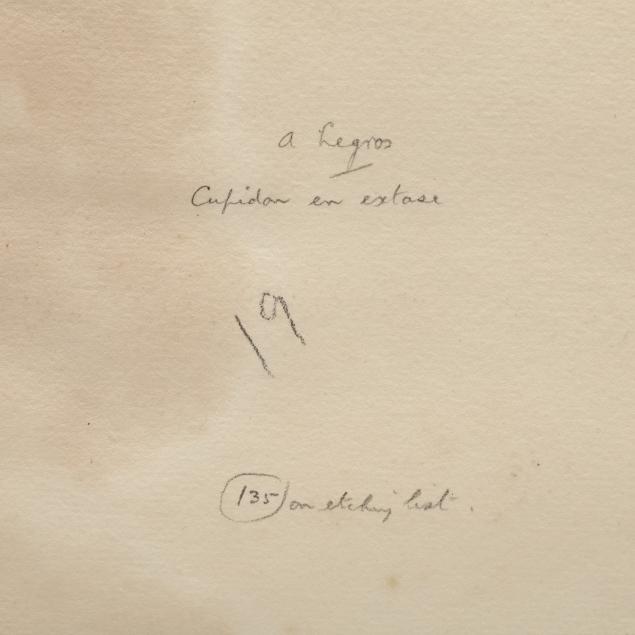 A Legros
Cupidon en extase
19
135 on etching list.